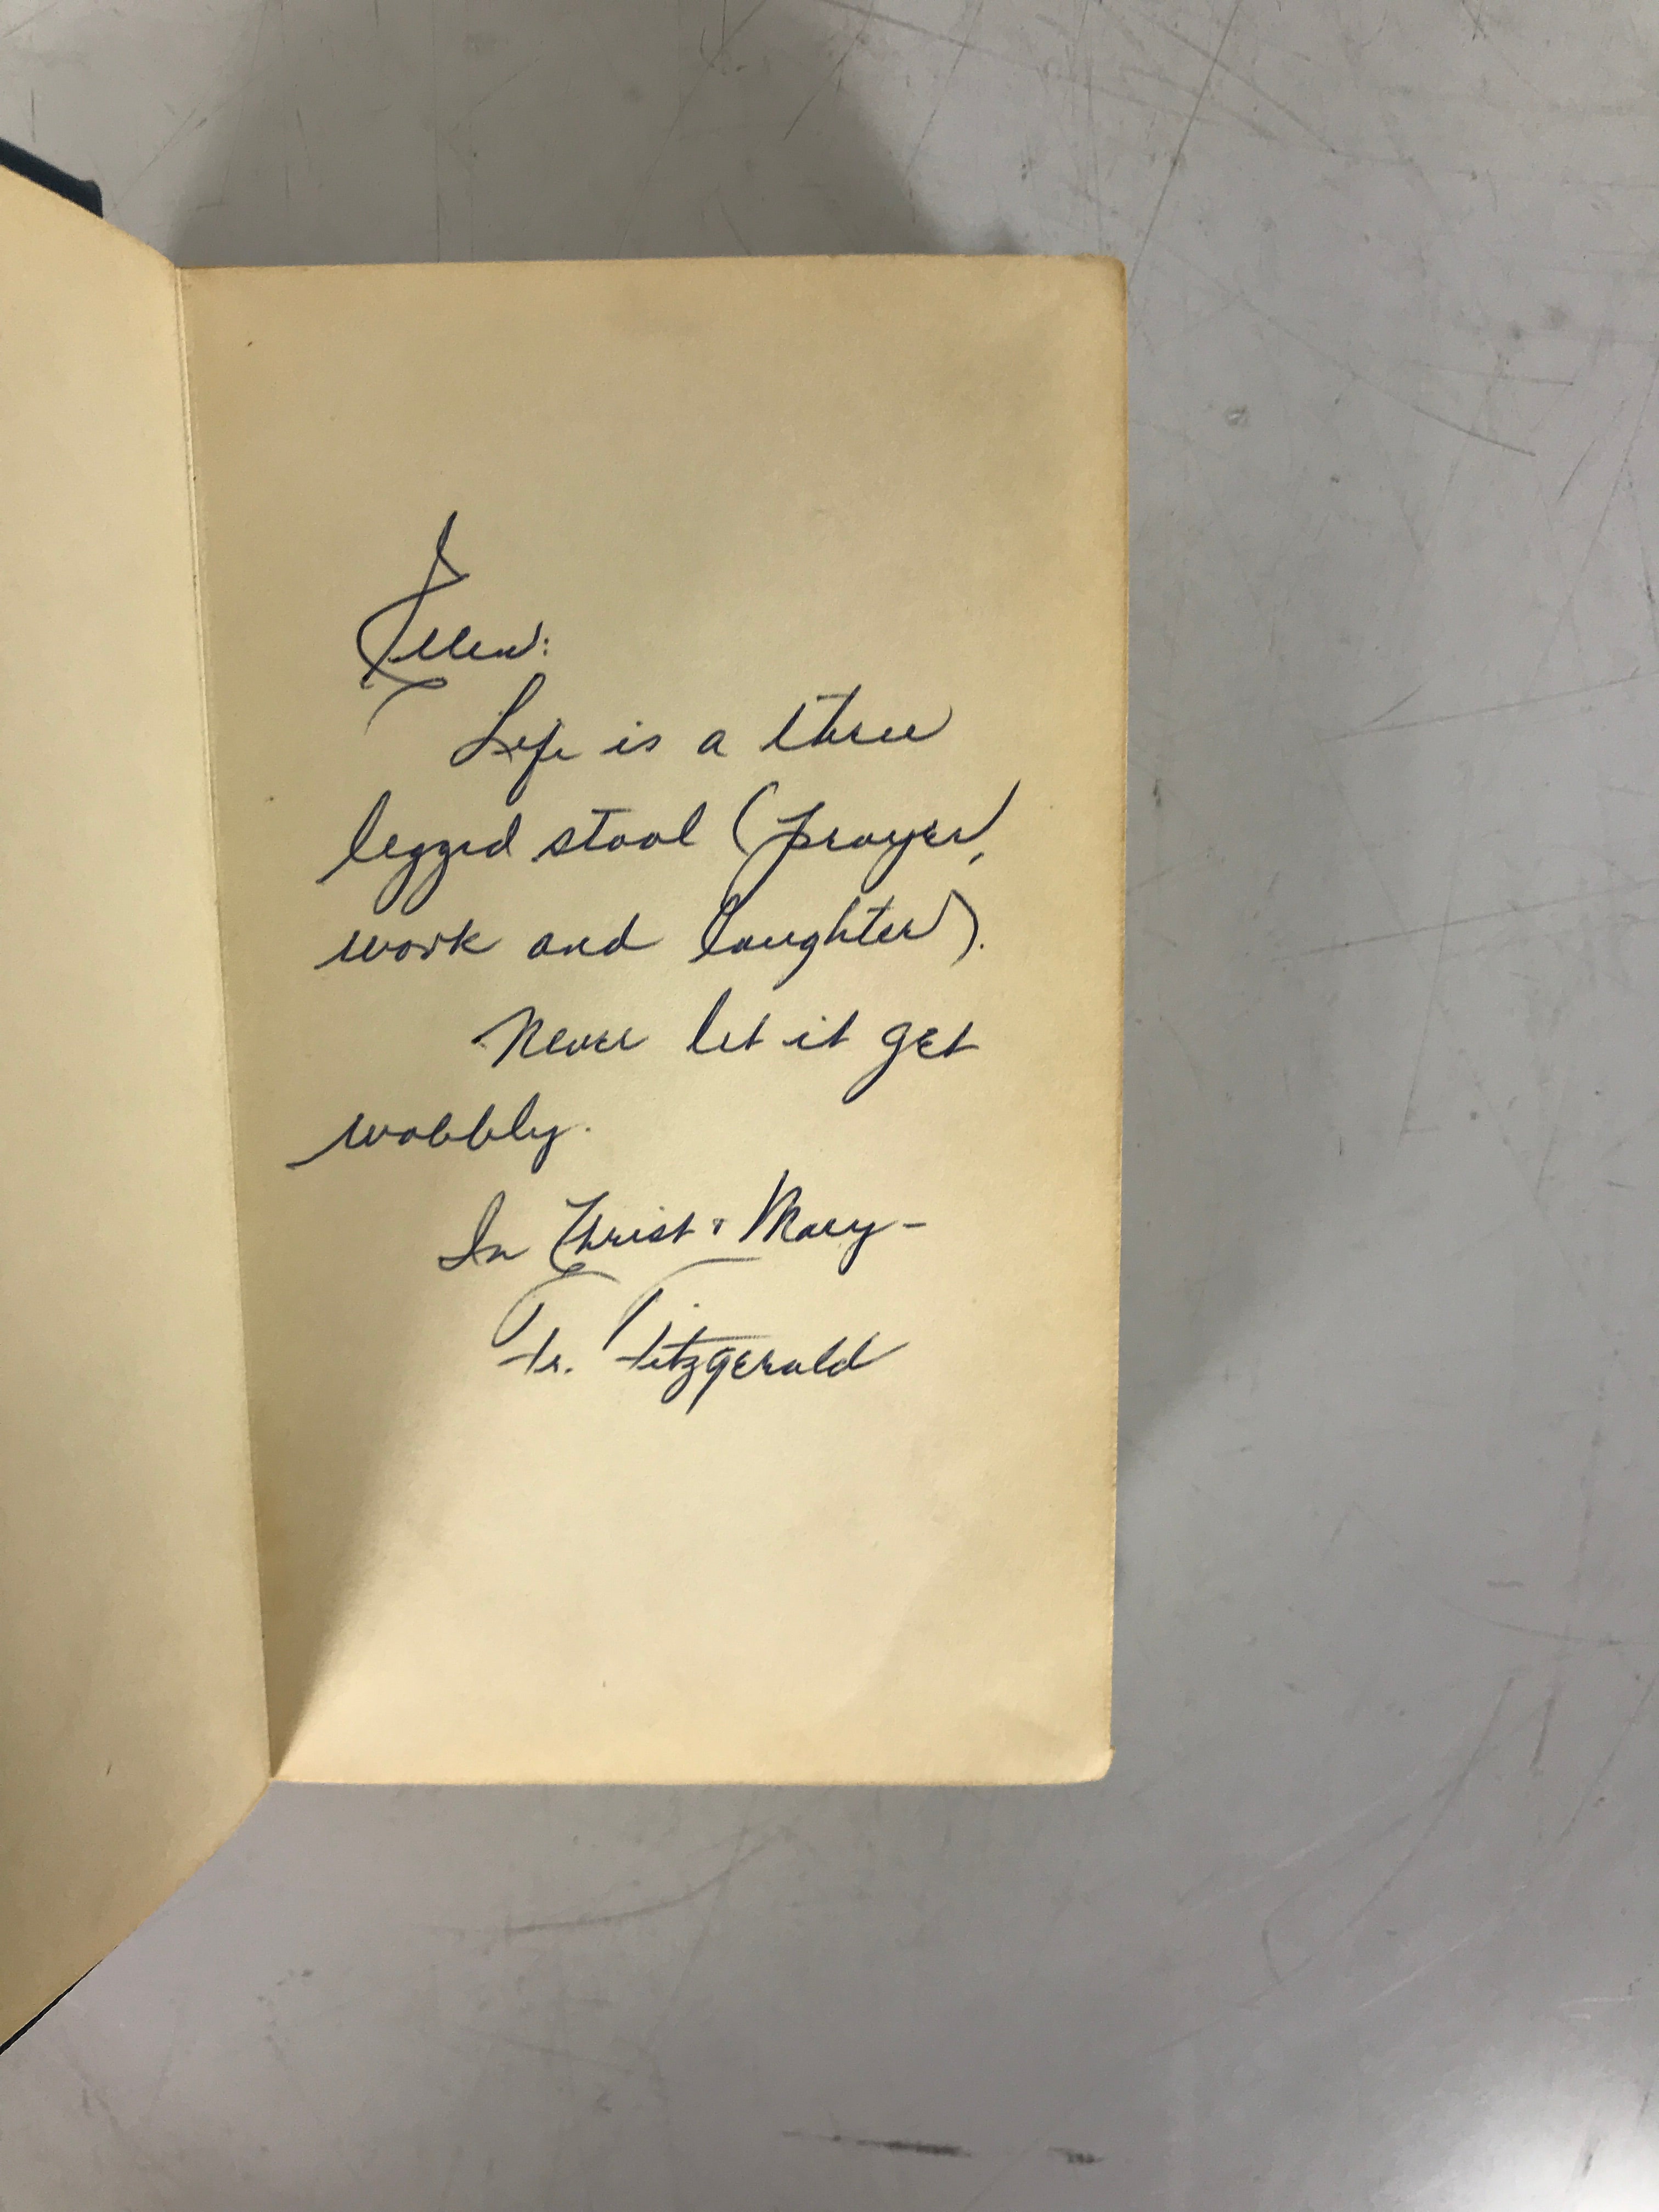 Ellen:
Life is a three
legged stool (prayer,
work and laughter).
Never let it get
wobbly.
In Christ & Mary-
Fr. Fitzgerald